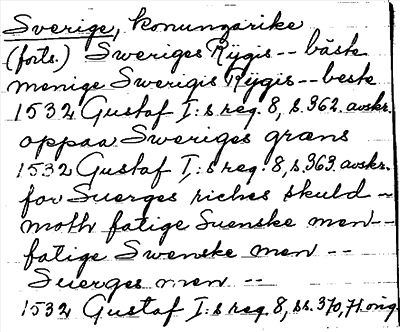 Sverige, konungarike
(forts.) Sweriges Rijgis -- bäsk
menige Swerigis Rijgis -- besk
1532 Gustaf I:s reg. 8, s. 362. avskr.
oppaa Sweriges græns
1532 Gustaf I:s reg. 8, s. 363. avskr.
for Suerges riches skuld --
moth fatige Suenske men --
fatige Swenske men --
Suerges men --
1532 Gustaf I:s reg. 8, ss. 370, 71 orig.